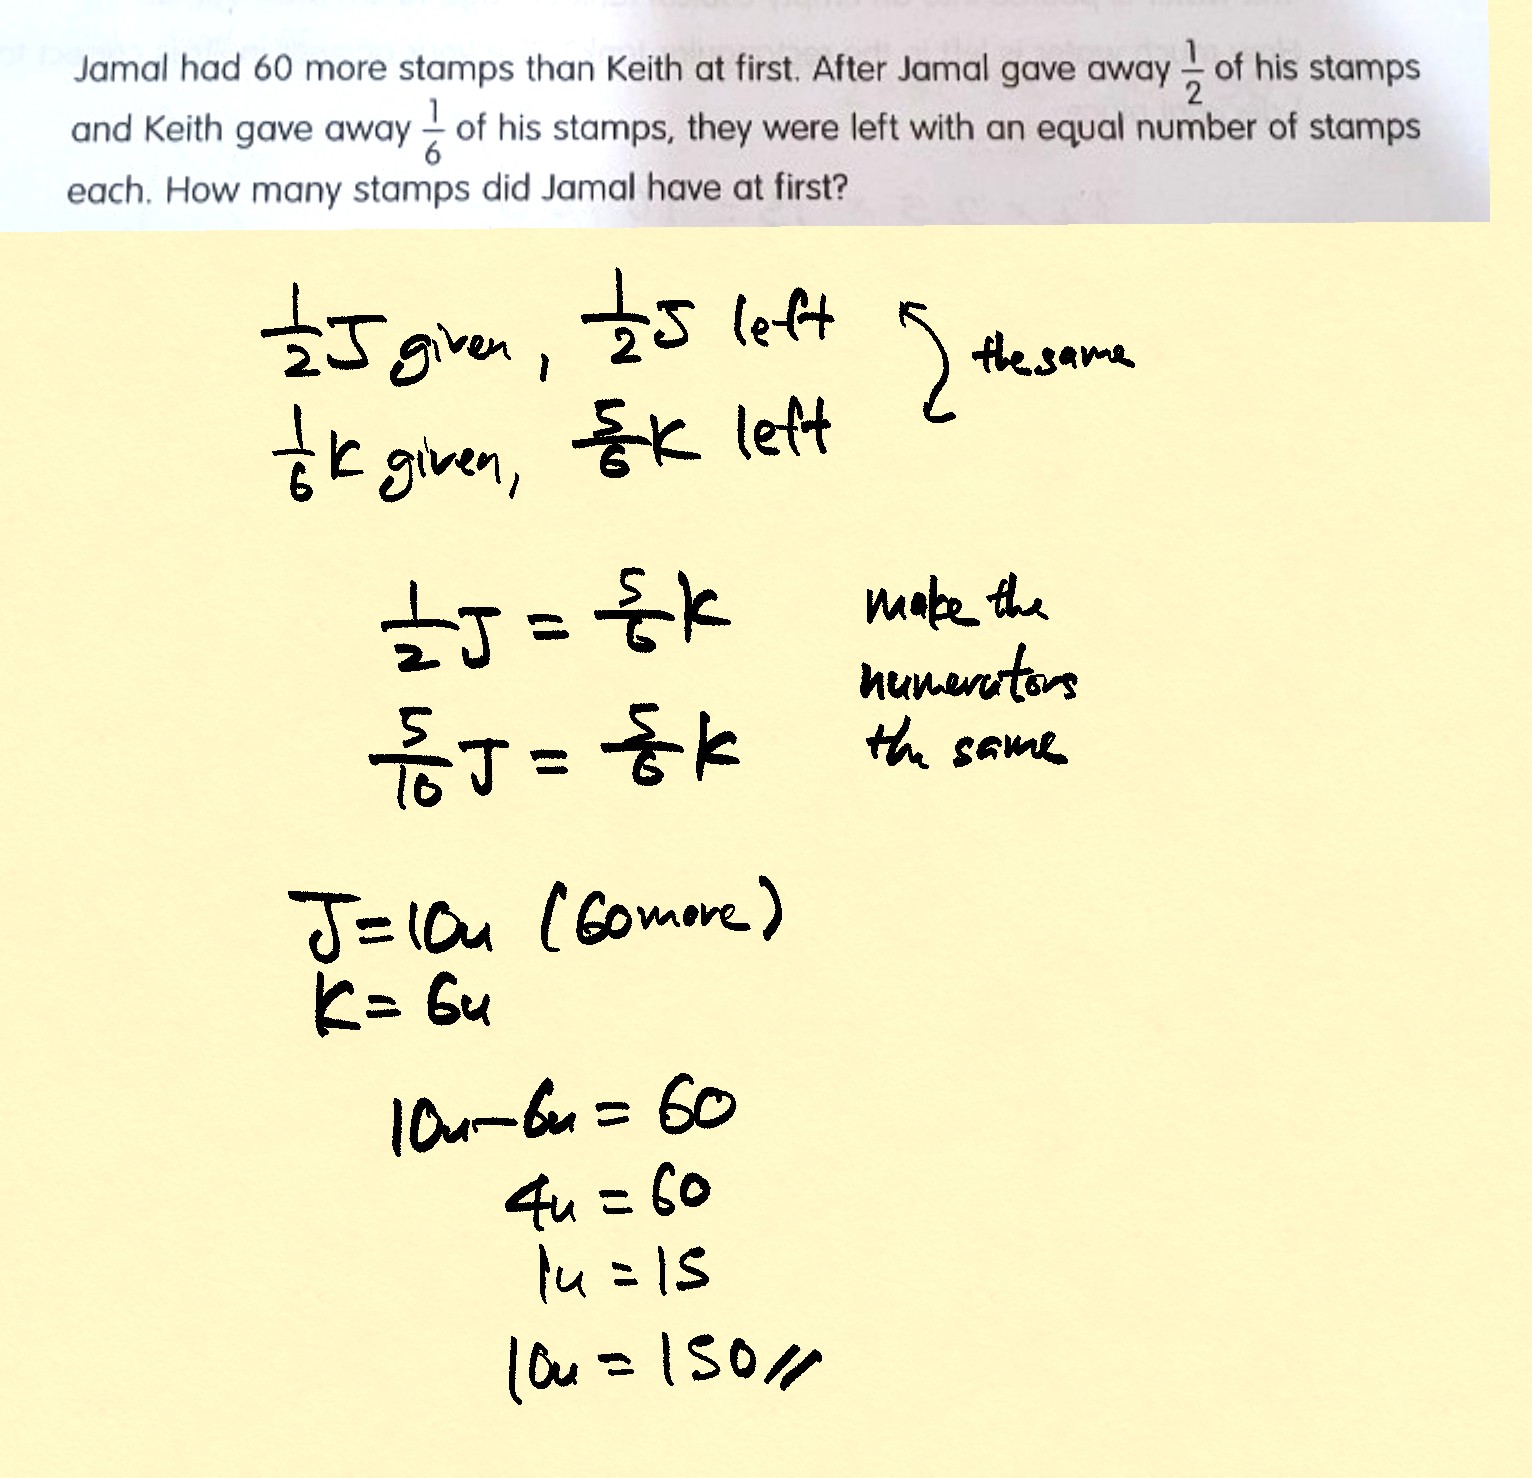 Jamal had 60 more stamps than Keith at first. After Jamal gave away 1/2 of his stamps
and Keith gave away 1/6 of his stamps, they were left with an equal number of stamps
each. How many stamps did Jamal have at first?
1/2 J given, 1/2 J left
the same
1/6 K given, 5/6 K left
1/2 J = 5/6 K
make the
numerators
the same
5/10 J = 5/6 K
J = 10u (60 more)
K = 6u
10u - 6u = 60
4u = 60
1u = 15
10u = 150 //